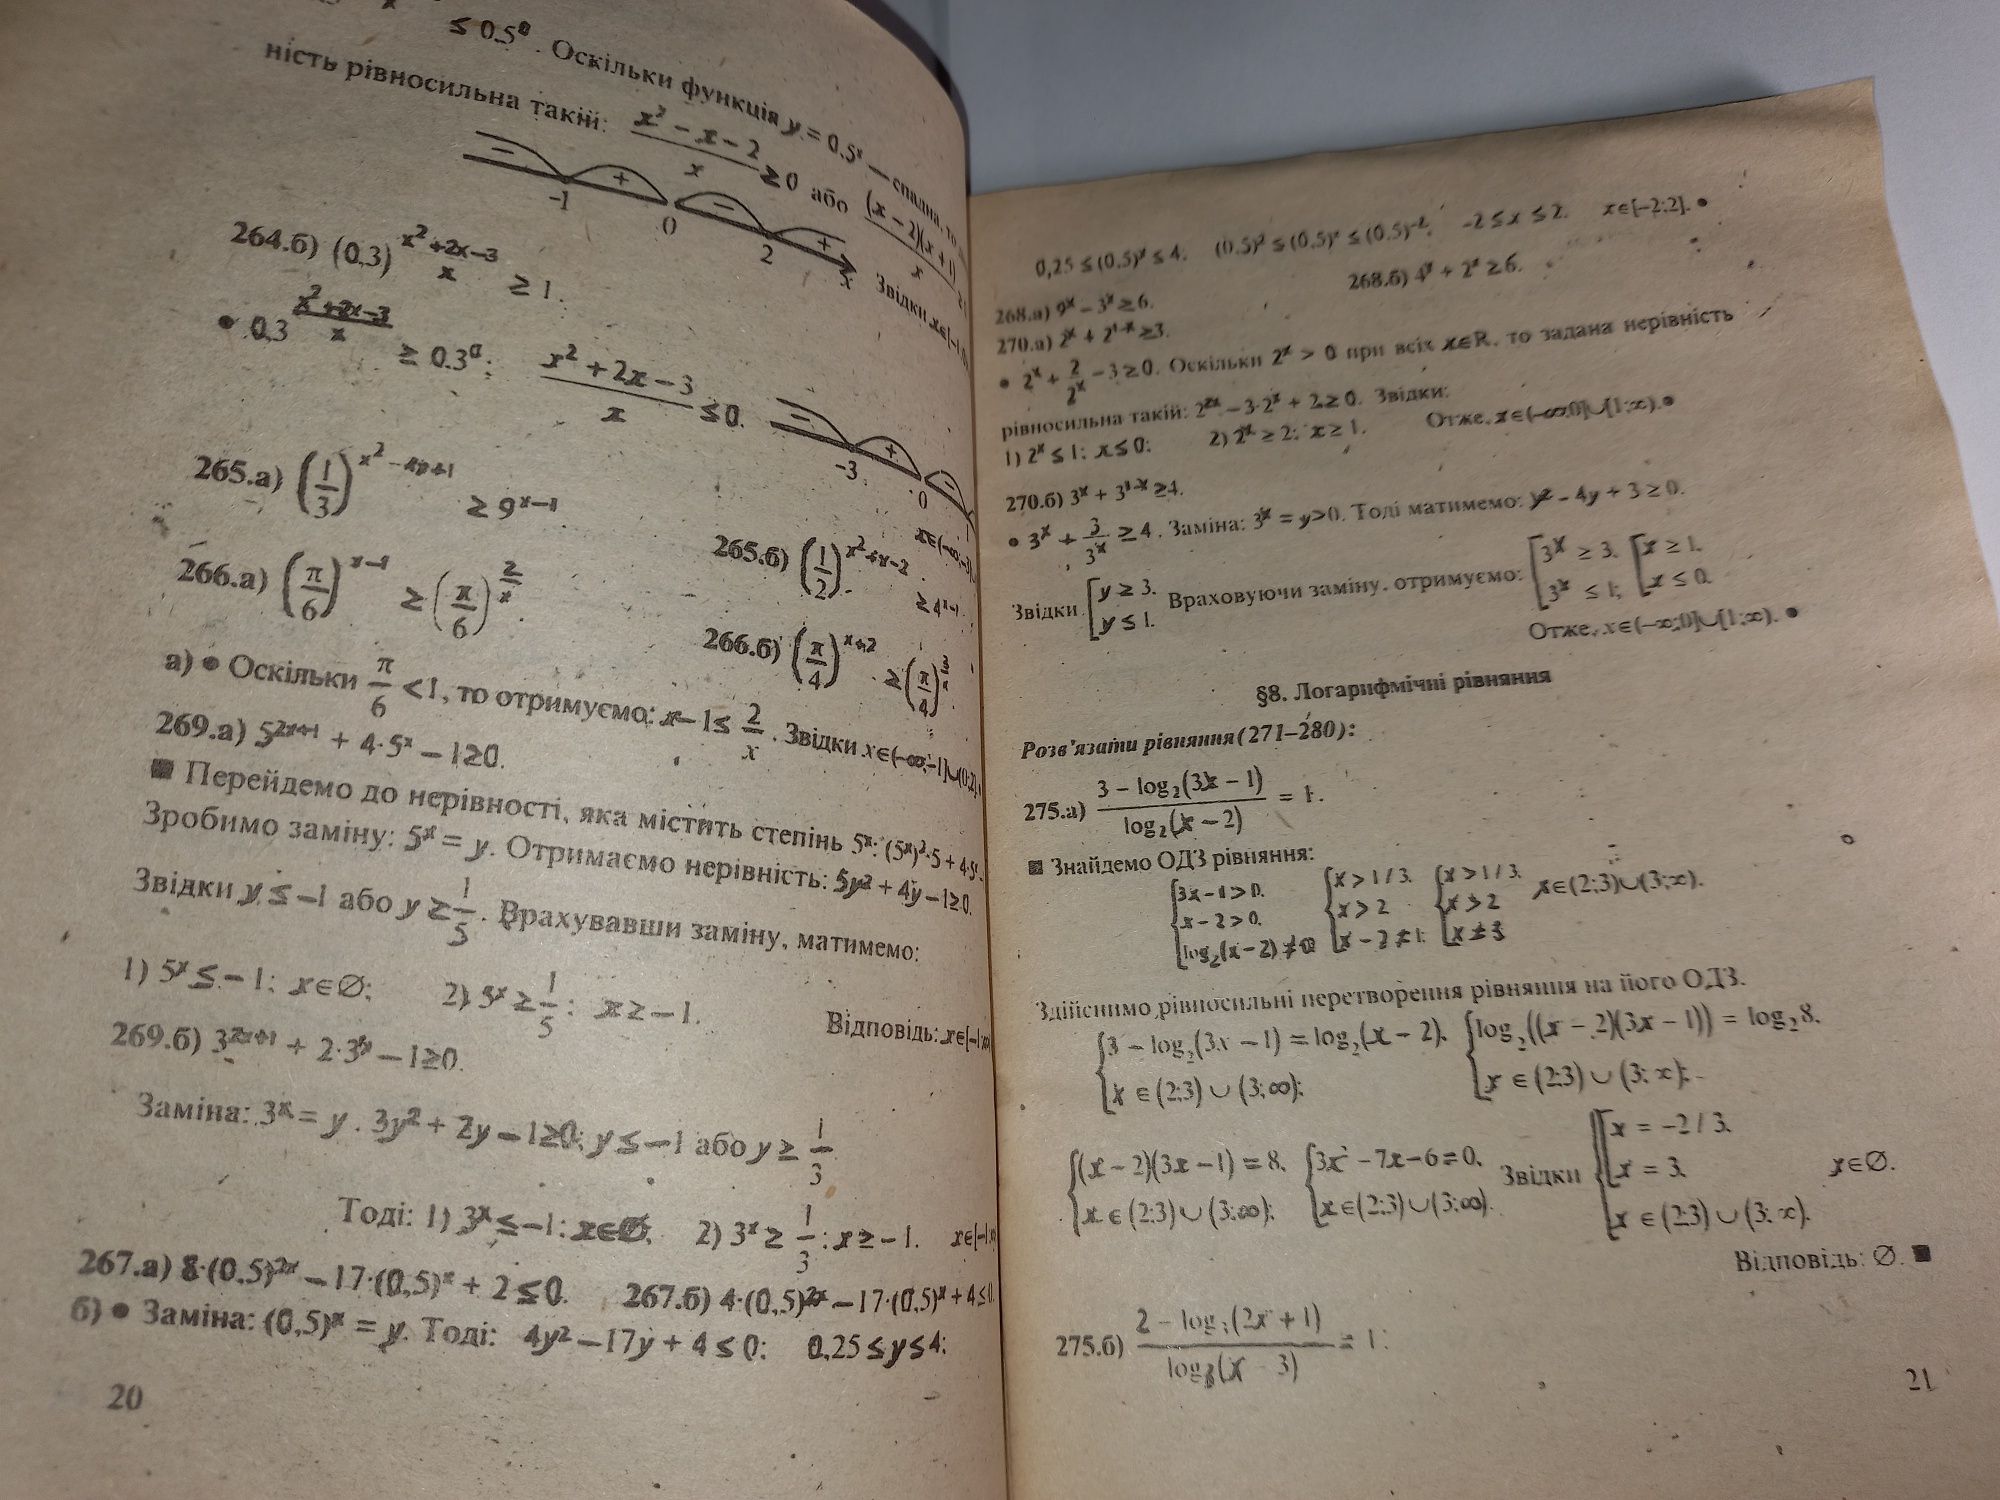 ≤ 0,5⁰. Оскільки функція y = 0,5ˣ — спадна, то
ність рівносильна такій: (x² − x − 2)/x ≥ 0 або (x − 2)(x + 1)/x
− + − + −1 0 2 x
Звідки x∈[−1;0)
264.б) (0,3)^((x²+2x−3)/x) ≥ 1.
• 0,3^((x²+2x−3)/x) ≥ 0,3⁰; (x² + 2x − 3)/x ≤ 0.
− + − −3 0
x∈(−∞;−3]
265.а) (1/3)^(x²−4x+1) ≥ 9^(x−1)
265.б) (1/2)^(x²+x−2) ≥ 4^(x−1)
266.а) (π/6)^(x−1) ≥ (π/6)^(2/x).
266.б) (π/4)^(x+2) ≥ (π/4)^(3/x)
а) • Оскільки π/6 < 1, то отримуємо: x − 1 ≤ 2/x. Звідки x∈(−∞;−1]∪(0;2].
269.а) 5^(2x+1) + 4·5ˣ − 1≥0.
■ Перейдемо до нерівності, яка містить степінь 5ˣ: (5ˣ)²·5 + 4·5ˣ
Зробимо заміну: 5ˣ = y. Отримаємо нерівність: 5y² + 4y − 1≥0.
Звідки y ≤ −1 або y ≥ 1/5. Врахувавши заміну, матимемо:
1) 5ˣ ≤ −1; x∈∅; 2) 5ˣ ≥ 1/5; x ≥ −1. Відповідь: x∈[−1;∞)
269.б) 3^(2x+1) + 2·3ˣ − 1≥0.
Заміна: 3ˣ = y. 3y² + 2y − 1≥0; y ≤ −1 або y ≥ 1/3.
Тоді: 1) 3ˣ ≤ −1; x∈∅; 2) 3ˣ ≥ 1/3; x ≥ −1. x∈[−1;∞)
267.а) 8·(0,5)^(2x) − 17·(0,5)ˣ + 2 ≤ 0. 267.б) 4·(0,5)^(2x) − 17·(0,5)ˣ + 4 ≤ 0.
б) • Заміна: (0,5)ˣ = y. Тоді: 4y² − 17y + 4 ≤ 0; 0,25 ≤ y ≤ 4;
20
0,25 ≤ (0,5)ˣ ≤ 4; (0,5)² ≤ (0,5)ˣ ≤ (0,5)⁻²; −2 ≤ x ≤ 2. x∈[−2;2]. •
268.а) 9ˣ − 3ˣ ≥ 6. 268.б) 4ˣ + 2ˣ ≥ 6.
270.а) 2ˣ + 2^(1−x) ≥ 3.
• 2ˣ + 2/2ˣ − 3 ≥ 0. Оскільки 2ˣ > 0 при всіх x∈R, то задана нерівність
рівносильна такій: 2^(2x) − 3·2ˣ + 2 ≥ 0. Звідки:
1) 2ˣ ≤ 1; x ≤ 0; 2) 2ˣ ≥ 2; x ≥ 1. Отже, x∈(−∞;0]∪[1;∞). •
270.б) 3ˣ + 3^(1−x) ≥ 4.
• 3ˣ + 3/3ˣ ≥ 4. Заміна: 3ˣ = y>0. Тоді матимемо: y² − 4y + 3 ≥ 0.
Звідки [y ≥ 3, y ≤ 1. Враховуючи заміну, отримуємо: [3ˣ ≥ 3, 3ˣ ≤ 1; [x ≥ 1, x ≤ 0.
Отже, x∈(−∞;0]∪[1;∞). •
§8. Логарифмічні рівняння
Розв'язати рівняння (271–280):
275.а) (3 − log₂(3x − 1))/(log₂(x − 2)) = 1.
■ Знайдемо ОДЗ рівняння:
{3x − 1 > 0, x − 2 > 0, log₂(x − 2) ≠ 0 {x > 1/3, x > 2 x − 2 ≠ 1; {x > 1/3, x > 2 x ≠ 3 x∈(2;3)∪(3;∞).
Здійснимо рівносильні перетворення рівняння на його ОДЗ.
{3 − log₂(3x − 1) = log₂(x − 2), x ∈ (2;3) ∪ (3;∞); {log₂((x − 2)(3x − 1)) = log₂8, x ∈ (2;3) ∪ (3;∞);
{(x − 2)(3x − 1) = 8, x ∈ (2;3) ∪ (3;∞); {3x² − 7x − 6 = 0, x∈(2;3)∪(3;∞). Звідки {[x = −2/3, x = 3, x ∈ (2;3) ∪ (3;∞). x∈∅.
Відповідь: ∅. ■
275.б) (2 − log₃(2x + 1))/(log₃(x − 3)) = 1;
21